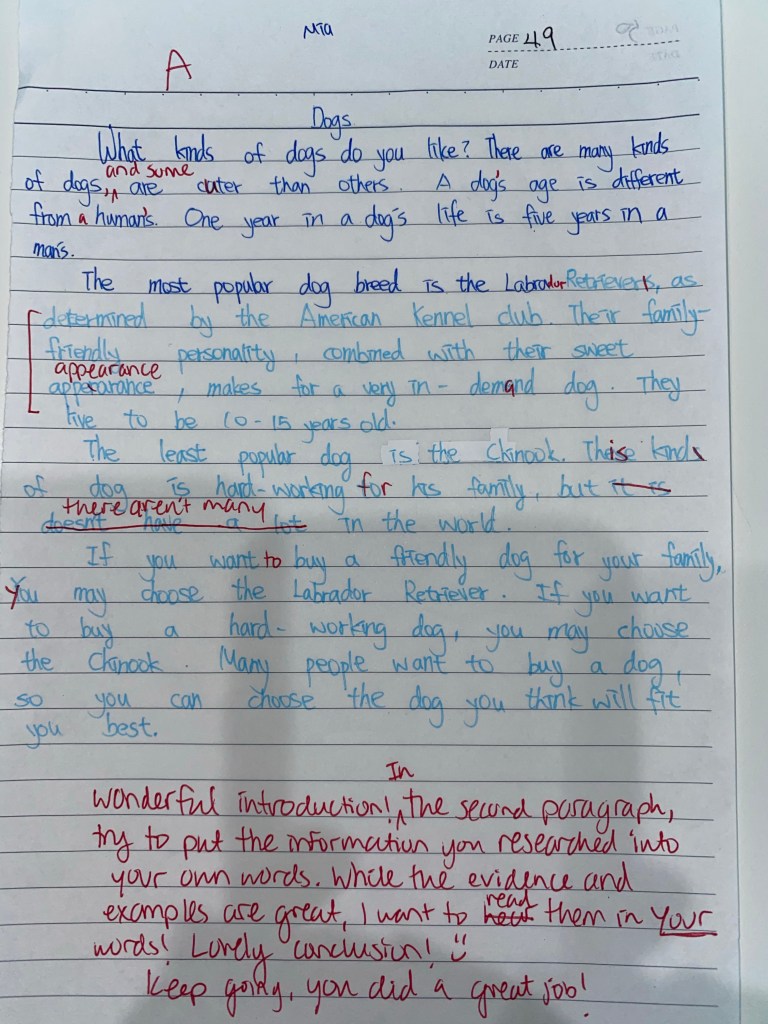 Mia
PAGE 49
DATE
A
Dogs
What kinds of dogs do you like? There are many kinds
and some
of dogs, are cuter than others. A dog's age is different
from a human's. One year in a dog's life is five years in a
man's.
The most popular dog breed is the Labrador Retriever, as
determined by the American Kennel club. Their family-
friendly personality, combined with their sweet
appearance
appearance, makes for a very in-demand dog. They
live to be 10-15 years old.
The least popular dog is the Chinook. This kind
of dog is hard-working for his family, but it is
there aren't many
doesn't have a lot in the world.
If you want to buy a friendly dog for your family,
you may choose the Labrador Retriever. If you want
to buy a hard-working dog, you may choose
the Chinook. Many people want to buy a dog,
so you can choose the dog you think will fit
you best.
In
wonderful introduction! the second paragraph,
try to put the information you researched into
your own words. While the evidence and
read
examples are great, I want to hear them in your
words! Lovely conclusion!
Keep going, you did a great job!